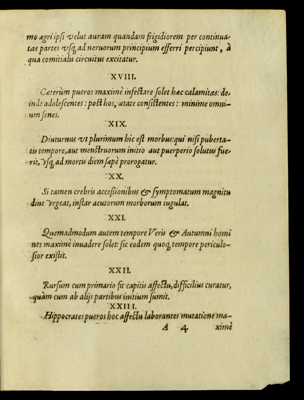 mo ægri ipsi velut auram quandam frigidiorem per continua-
tas partes vsq; ad neruorum principium efferri percipiunt, à
qua comitialis circuitus excitatur.
XVIII.
Cæterùm pueros maximè infestare solet hæc calamitas: de-
inde adolescentes: post hos, ætate consistentes: minime omni-
um senes.
XIX.
Diuturnus vt plurimum hic est morbus: qui nisi puberta-
tis tempore, aut menstruorum initio aut puerperio solutus fue-
rit, vsq; ad mortis diem sæpè prorogatur.
XX.
Si tamen crebris accessionibus & symptomatum magnitu
dine vrgeat, instar acutorum morborum iugulat.
XXI.
Quemadmodum autem tempore Veris & Autumni homi
nes maximè inuadere solet: sic eodem quoq; tempore periculo-
sior existit.
XXII.
Rursum cum primario sit capitis affectu, difficilius curatur,
quàm cum ab alijs partibus initium sumit.
XXIII.
Hippocrates pueros hoc affectu laborantes mutatione ma-
A 4 ximè